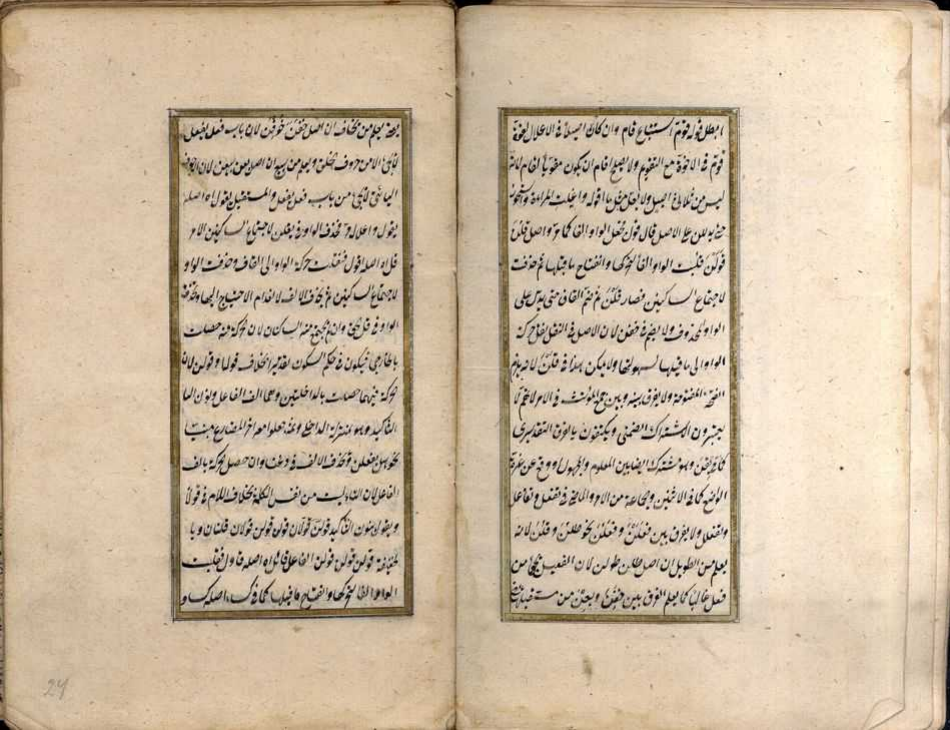 ابطل قوله قوم استتباع قام وان كان اصيلا فى الاعلال لقوة
قوم فى الاخوة مع التقويم ولا يصلح اقام ان يكون مقويا لقام لانه
ليس من ثلاثى اصيل ولا يعل مثل ما اقوله واغيلت المراءة واستحوذ
حتى يدللن على الاصل قال قول تجعل الواو الفا كما مر واصل قلن
قولن قلبت الواو الفا لتحركها وانفتاح ما قبلها ثم حذفت
لاجتماع الساكنين فصار قلن ثم ضم القاف حتى يدل على
الواو المحذوف ولا يضم فى خفن لان الاصل فى النقل نقل حركة
الواو الى ما قبلها لسهولتها ولا يمكن هذا فى قلن لانه يلزم
المفتوحة ولا يفرق بينه وبين جمع المؤنث فى الامر لانهم لا
يعتبرون الاشتراك الضمنى ويكتفون بالفرق التقديرى
كما فى بعن وهو مشترك ايضا بين المعلوم والمجهول او وقع عن غرة
الواضع كما فى الاثنين والجماعة من الامر والماضى فى تفعل وتفاعل
وتفعلل ولا يفرق بين فعلن وفعلن نحو طلن وقلن لانه
يعلم من الطويل ان اصل طلن طولن لان الفعيل يجئ من
فعل غالبا كما يعلم الفرق بين خفن وبعن من مستقبلهما
يعلم من يخاف ان اصل خفن خوفن لان باب فعل يفعل
لا يجئ الا من حروف الحلق ويعلم من يبيع ان اصل بعن بيعن لان الاجوف
اليائى لا يجئ من باب فعل يفعل والمستقبل يقول اه اصله
يقول واعلاله مر تحذف الواو فى يقلن لاجتماع الساكنين الامر
قل اه اصله اقول فنقلت حركة الواو الى القاف وحذفت الواو
لاجتماع الساكنين ثم تحذف الالف لانعدام الاحتياج اليها وتحذف
الواو فى قل الحق وان لم يجتمع فيه الساكنان لان الحركة فيه حصلت
بالخارجى فيكون فى حكم السكون تقديرا بخلاف قولا وقولن لان
الحركة فيهما حصلت بالداخلتين وهما الف الفاعل ونون التا
التاكيد وهو بمنزلة الداخل ومن ثمه جعلوا معه اخر المضارع مبنيا
نحو هل يفعلن وتحذف الالف فى دعتا وان حصل الحركة بالف
الفاعل لان التاء ليست من نفس الكلمة بخلاف اللام فى قولا
ويقول بنون التاكيد قولن قولان قولن قولن قولان قلنان وبا
لخفيفة قولن قولن قولن الفاعل قائل اه اصله قاول فقلبت
الواو الفا لتحركها وانفتاح ما قبلها كما فى كساء اصله كساو
24